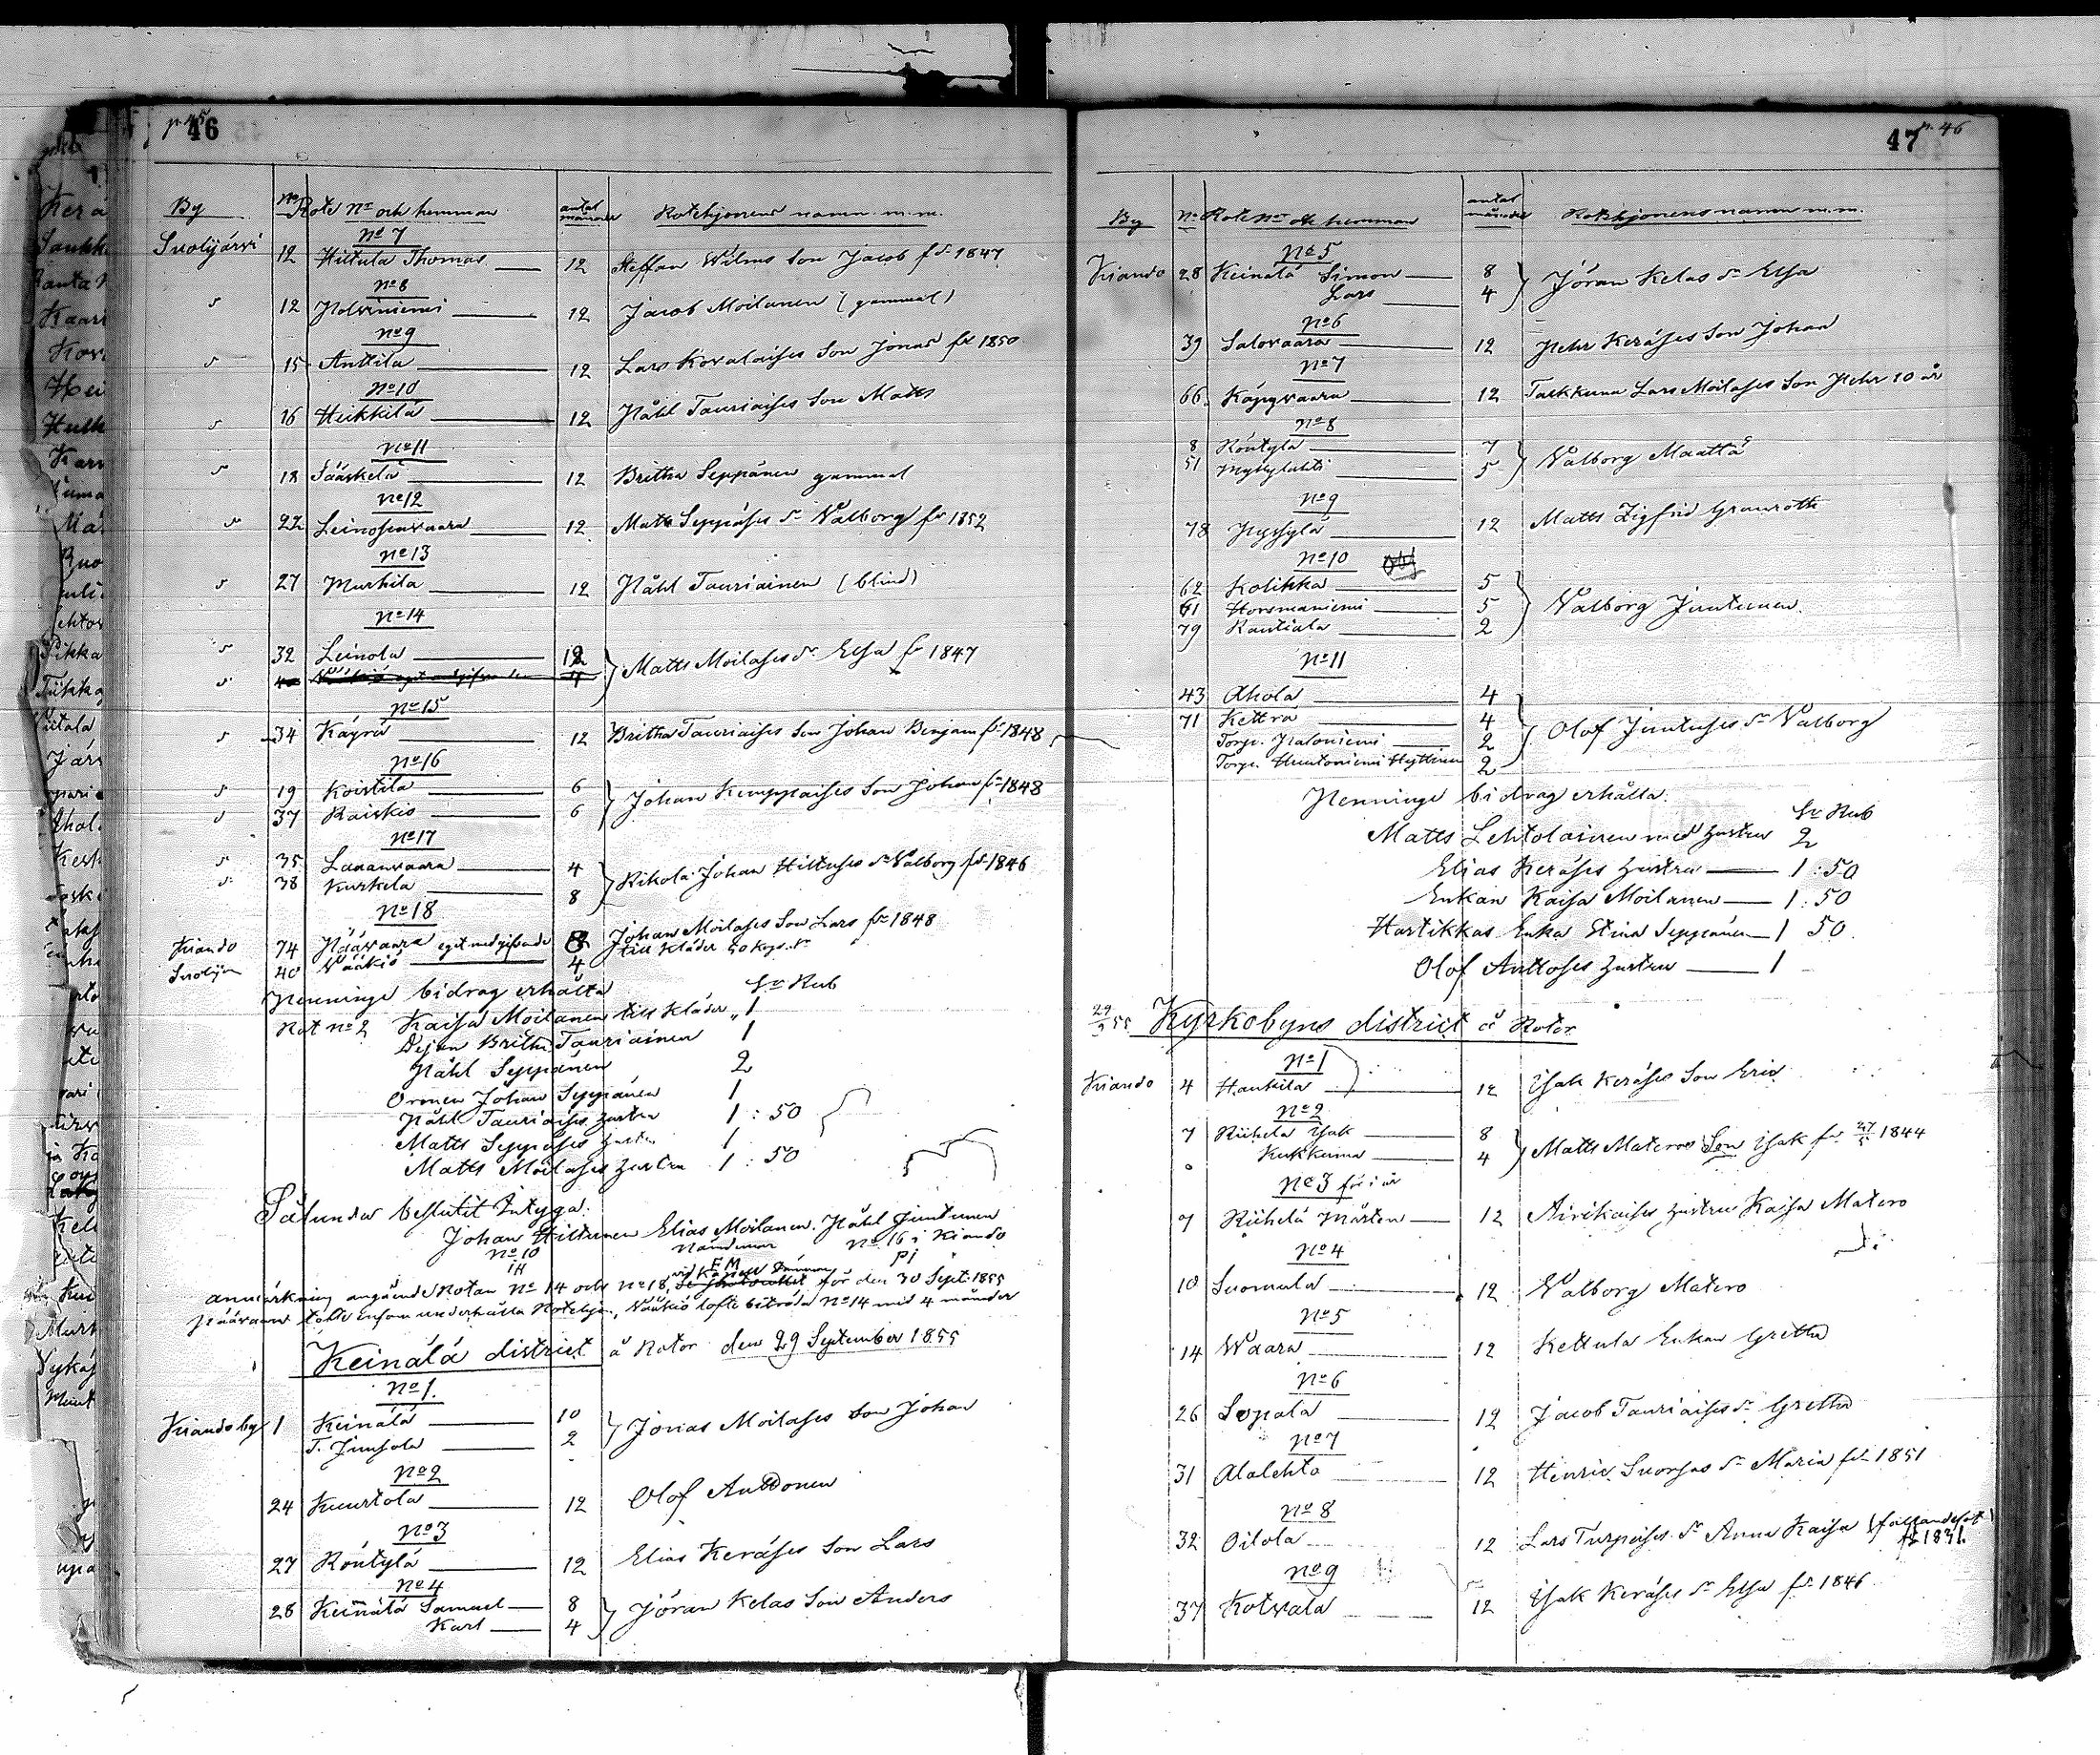 p. 45
46
By No Rote No och hemman antal månader Rotehjonens namn m.m.
No 7
Suolijärvi 12 Hiltula Thomas 12 Steffan Wilmis Son Jacob fd 1847
No 8
s 12 Polviniemi 12 Jacob Moilanen (gammal)
No 9
s 15 Anttila 12 Lars Kovalaises Son Jonas fd 1850
No 10
s 16 Heikkilä 12 Påhl Tauriaises Son Matts
No 11
s 18 Jääskelä 12 Britha Seppänen gammal
No 12
s 22 Leinosenvaara 12 Matts Seppäses dr Walborg fd 1852
No 13
s 27 Murhila 12 Påhl Tauriainen (blind)
No 14
s 32 Leinola 12 } Matts Moilases dr Elsa fr 1847
s 4
No 15
s 34 Käyrä 12 Britha Tauriaises Son Johan Benjam fd 1848
No 16
s 19 Koistila 6 } Johan Kemppaises Son Johan fd 1848
s 37 Raiskio 6
No 17
s 35 Lananvaara 4 } Rikola Johan Hiltuses dr Walborg fd 1846
s 38 Kurkela 8
No 18
Kiando 74 Päävaara eget medgifvande 8 Johan Moilases Son Lars fd 1848
Suolijn 40 Wääkiö 4 till kläder 50 kop. Sr
Penninge bidrag erhålla Sr Rub
Rot No 2 Kaisa Moilanen till kläder „ 1
Pejan Britha Tauriainen 1
Påhl Seppänen 2
Oronen Johan Seppänen 1
Påhl Tauriaises hustru 1 : 50
Matts Seppäses hustru 1
Matts Moilases hustru 1 : 50
Sålunda beslutit Intyga:
Johan Hiltunen Elias Moilanen. Påhl Juntunen
No 10 Nämdeman No 16 i Kiando
IH EM PJ
anmärkning angående Rotan No 14 och No 18, för den 30 Sept. 1855
Päävaara tålte Ensam underhålla Rotehjon, Wääkiö lofte biträda No 14 med 4 månder
Keinälä district å Rotor den 29 September 1855
No 1.
Kiando by 1 Keinälä 10 } Jonas Moilases Son Johan
T. Junsola 2
No 2
24 Kuurtola 12 Olof Anttonen
No 3
27 Röntylä 12 Elias Keräses Son Lars
No 4
28 Keinälä Samuel 8 } Jöran Kelas Son Anders
Karl 4
47 p. 46
By No Rote No och hemman antal månader Rotehjonens namn m.m.
No 5
Kiando 28 Keinälä Simon 8 } Jöran Kelas dr Elsa
Lars 4
No 6
39 Salovaara 12 Pehr Keräses Son Johan
No 7
66 Käpyvaara 12 Takkuna Lars Moilases Son Pehr 10 år
No 8
8 Röntylä 7 } Walborg Määttä
51 Myllylahti 5
No 9
78 Pyssylä 12 Matts Zigfrid Granroth
No 10
62 Kolikka 5 } Walborg Juntunen
61 Horsmaniemi 5
79 Rautiala 2
No 11
43 Ahola 4 } Olof Juntuses dr Walborg
71 Kettra 4
Torp. Paloniemi 2
Torp. Huutoniemi Hyttinen 2
Penninge bidrag erhålla: Sr Rub
Matts Lehtolainen med hustru 2
Elias Keräses hustru 1 : 50
Enkan Kaisa Moilanen 1 : 50
Hartikkas Enka Stina Seppänen 1 50
Olof Anttoses hustru 1
29/9 55 Kyrkobyns district å Rotor
No 1
Kiando 4 Haukila 12 Isak Keräses Son Eric
No 2
7 Riihelä Isak 8 } Matts Materos Son Isak fr 27/5 1844
Kukkuma 4
No 3 för i år
7 Riihelä Mårten 12 Airikaises hustru Kaisa Matero
No 4
10 Suomula 12 Walborg Matero
No 5
14 Waara 12 Kettula Enkan Gretha
No 6
26 Sopala 12 Jacob Tauriaises dr Gretha
No 7
31 Alalehto 12 Henric Suorsas dr Maria fd 1851
No 8
32 Oilola 12 Lars Turpeises dr Anna Kaisa (fallandesot) fd 1831
No 9
37 Kotvala 12 Isak Keräses dr Elsa fd 1846